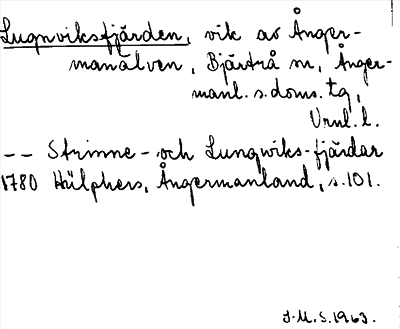 Lugnviksfjärden, vik av Ånger-
manälven, Bjärtrå sn, Ånger-
manl. s. doms. tg,
Vnl. l.
-- Strinne- och Lungwiks-fjärdar
1780 Hülphers, Ångermanland, s. 101.
J.M.S. 1963.